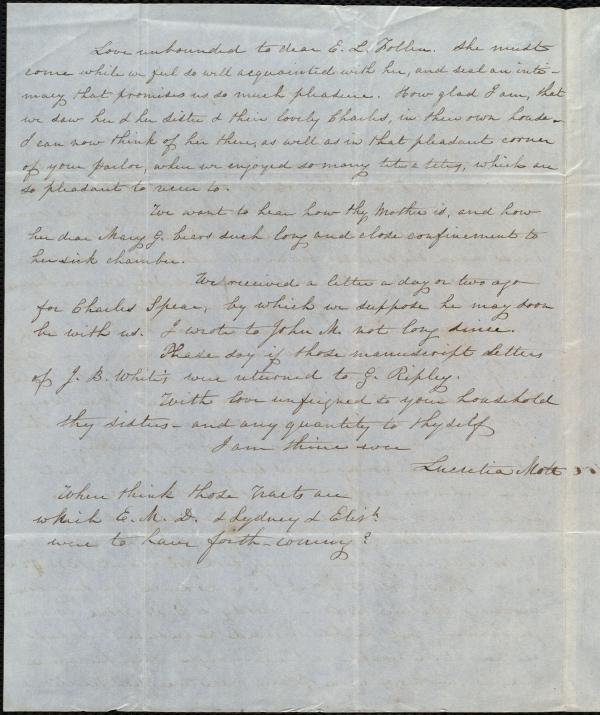 Love unbounded to dear E. L. Follen. She must
come while we feel so well acquainted with her, and seal an inti-
macy that promises us so much pleasure. How glad I am, that
we saw her & her sister & their lovely Charles, in their own house–
I can now think of her there, as well as in that pleasant corner
of your parlor, when we enjoyed so many tete a tetes, which are
so pleasant to recur to.
We want to hear how thy Mother is, and how
her dear Mary G. bears such long and close confinement to
her sick chamber.
We received a letter a day or two ago
for Charles Spear, by which we suppose he may soon
be with us. I wrote to John M. not long since.
Please say if those manuscript letters
of J. B. White's were returned to G. Ripley.
With love unfeigned to your household
thy sisters– and any quantity to thyself
I am thine ever
Lucretia Mott
When think those Tracts are
which E. M. D. & Sydney & Eliz.h
were to have forth-coming?